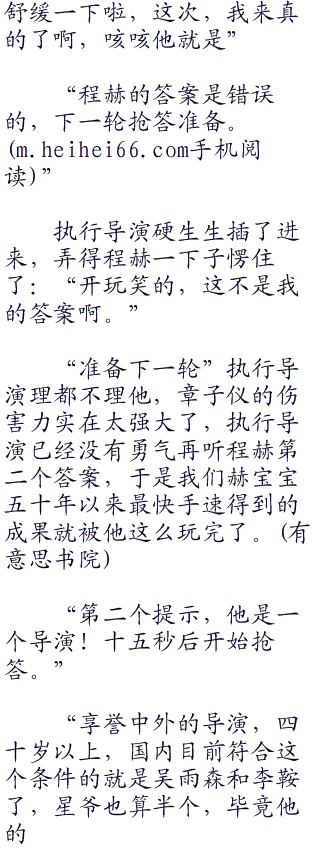 舒缓一下啦，这次，我来真
的了啊，咳咳他就是”
“程赫的答案是错误
的，下一轮抢答准备。
(m.heihei66.com手机阅
读)”
执行导演硬生生插了进
来，弄得程赫一下子愣住
了：“开玩笑的，这不是我
的答案啊。”
“准备下一轮”执行导
演理都不理他，章子仪的伤
害力实在太强大了，执行导
演已经没有勇气再听程赫第
二个答案，于是我们赫宝宝
五十年以来最快手速得到的
成果就被他这么玩完了。(有
意思书院)
“第二个提示，他是一
个导演！十五秒后开始抢
答。”
“享誉中外的导演，四
十岁以上，国内目前符合这
个条件的就是吴雨森和李鞍
了，星爷也算半个，毕竟他
的